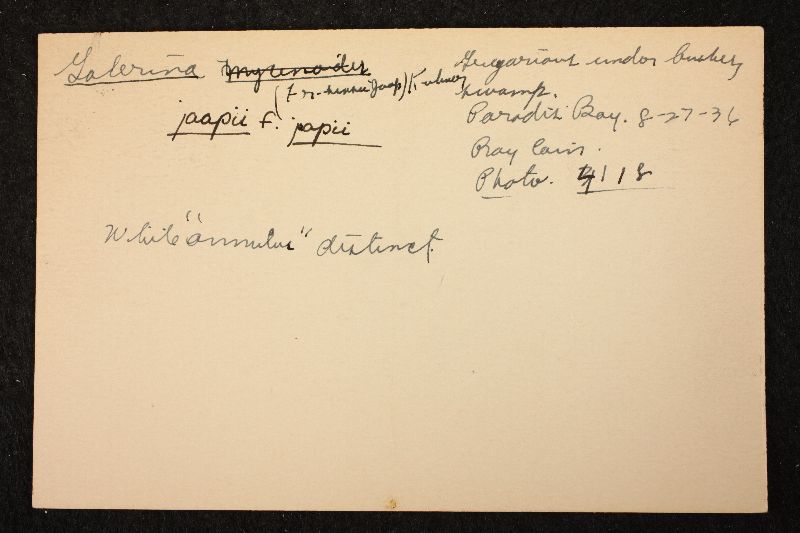 Galerina mycenoides
jaapii f. japii
Gregarious under bushes,
swamp.
Paradise Bay. 8-27-36
Ray Cain.
Photo. 4118
White "annulus" distinct.